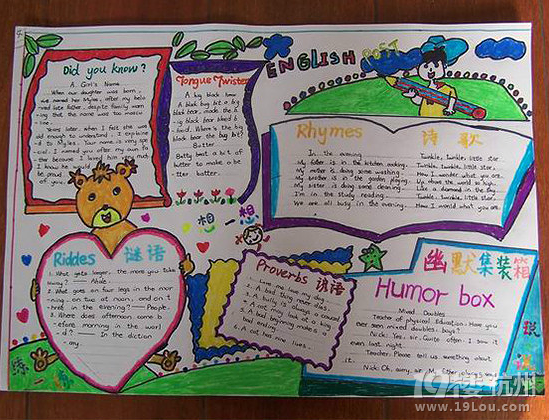 ENGLISH POST
Did you know?
A Girl's Name
When our daughter was born,
we named her Myles, after my
late father, despite family
that the name was too
Years later, when I felt she was
old enough to understand, I
to Myles. Your name is very
I named you after my own
I know he would
be proud
of you.
Tongue Twister
A big black bear
A black bug bit a big
black bear, made the
big black bear bleed
Where's the big
black bear the
Butter
Betty beat a bit of
butter to make a
better batter.
Rhymes 诗歌
In the evening
My father is in the kitchen cooking.
My mother is doing some washing.
My brother is in the garden playing.
My sister is doing some cleaning.
I'm in the study reading.
We are all busy in the evening.
Twinkle, twinkle, little star,
How I wonder what you are.
Up above the world so high,
Like a diamond in the sky.
Twinkle, twinkle, little star,
How I wonder what you are.
想一想
Riddes 谜语
1. What gets larger, the more you take
away? — A hole.
2. What goes on four legs in the
morning, on two at noon, and on
three in the evening? — People.
3. Where does afternoon come
before morning in the world
? — In the diction
ary.
Proverbs 谚语
1. Love me, love my dog.
2. A bad thing never dies.
3. A bully is always a coward.
4. A cat may look at a king.
5. A bad beginning makes a
bad ending.
6. A cat has nine lives.
幽默集装箱
Humor box
Mixed Doubles
Teacher of physical Education: Have you
ever seen mixed doubles, boys?
Nick: Yes, sir. Quite often. I saw it
even last night.
Teacher: Please tell us something about
it.
Nick: Oh, sorry, sir. My father always
19楼 杭州
www.19Lou.com